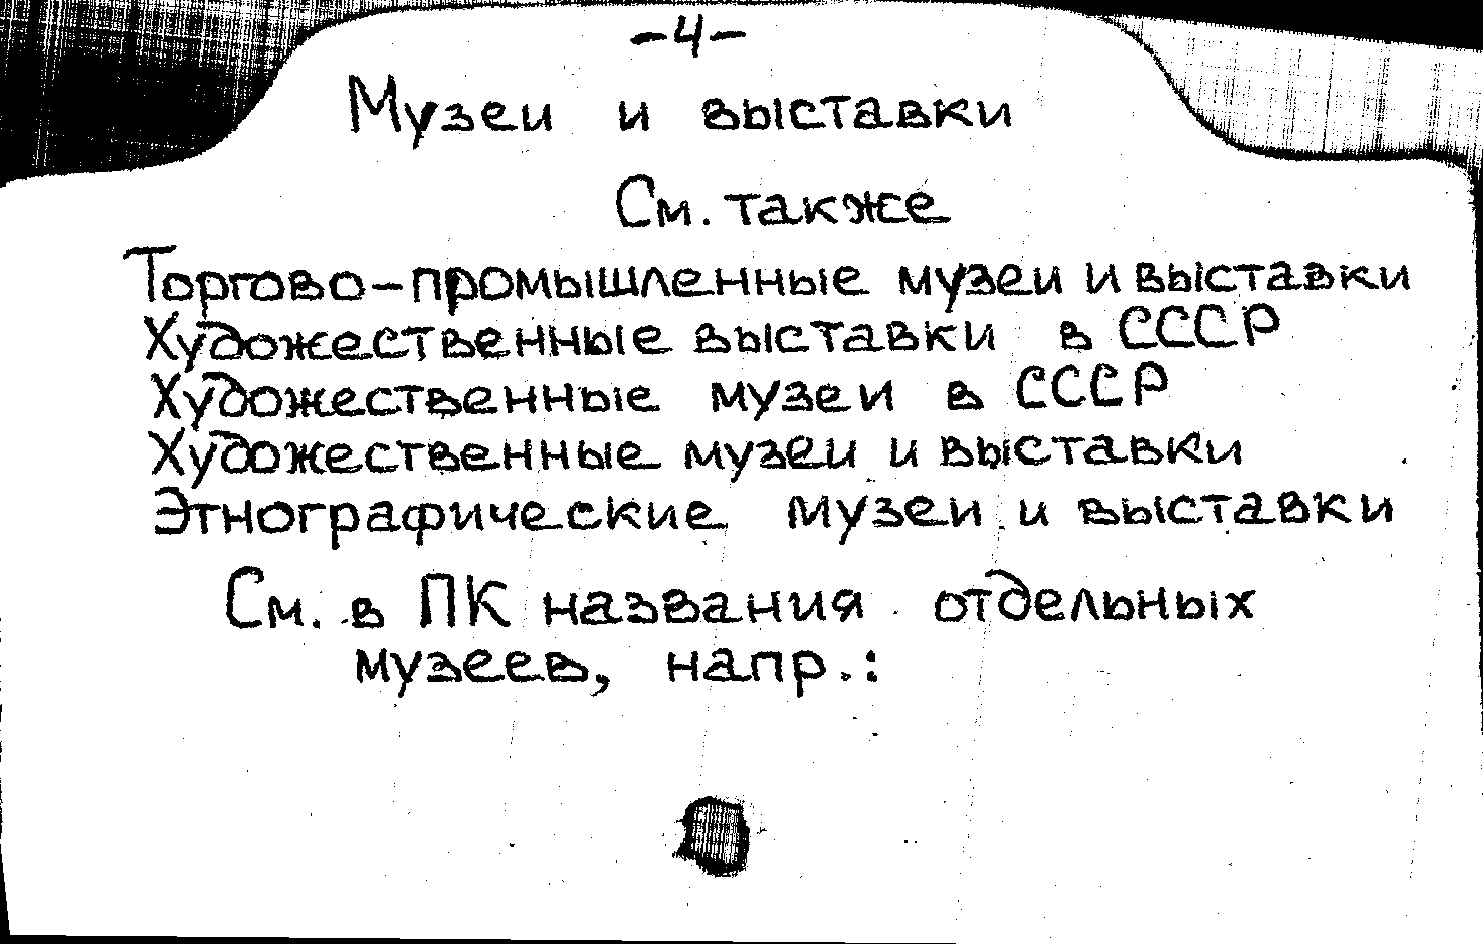 -4-
Музеи и выставки
См. также
Торгово-промышленные музеи и выставки
Художественные выставки в СССР
Художественные музеи в СССР
Художественные музеи и выставки
Этнографические музеи и выставки
См. в ПК названия отдельных
музеев, напр.: